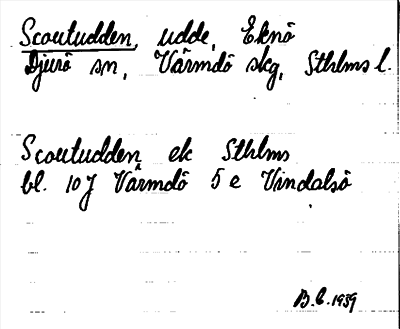 Scoutudden, udde, Eknö
Djurö sn, Värmdö skg, Sthlms l.
Scoutudden ek Sthlms
bl. 107 Värmdö 5 e Vindalsö
B.C. 1939